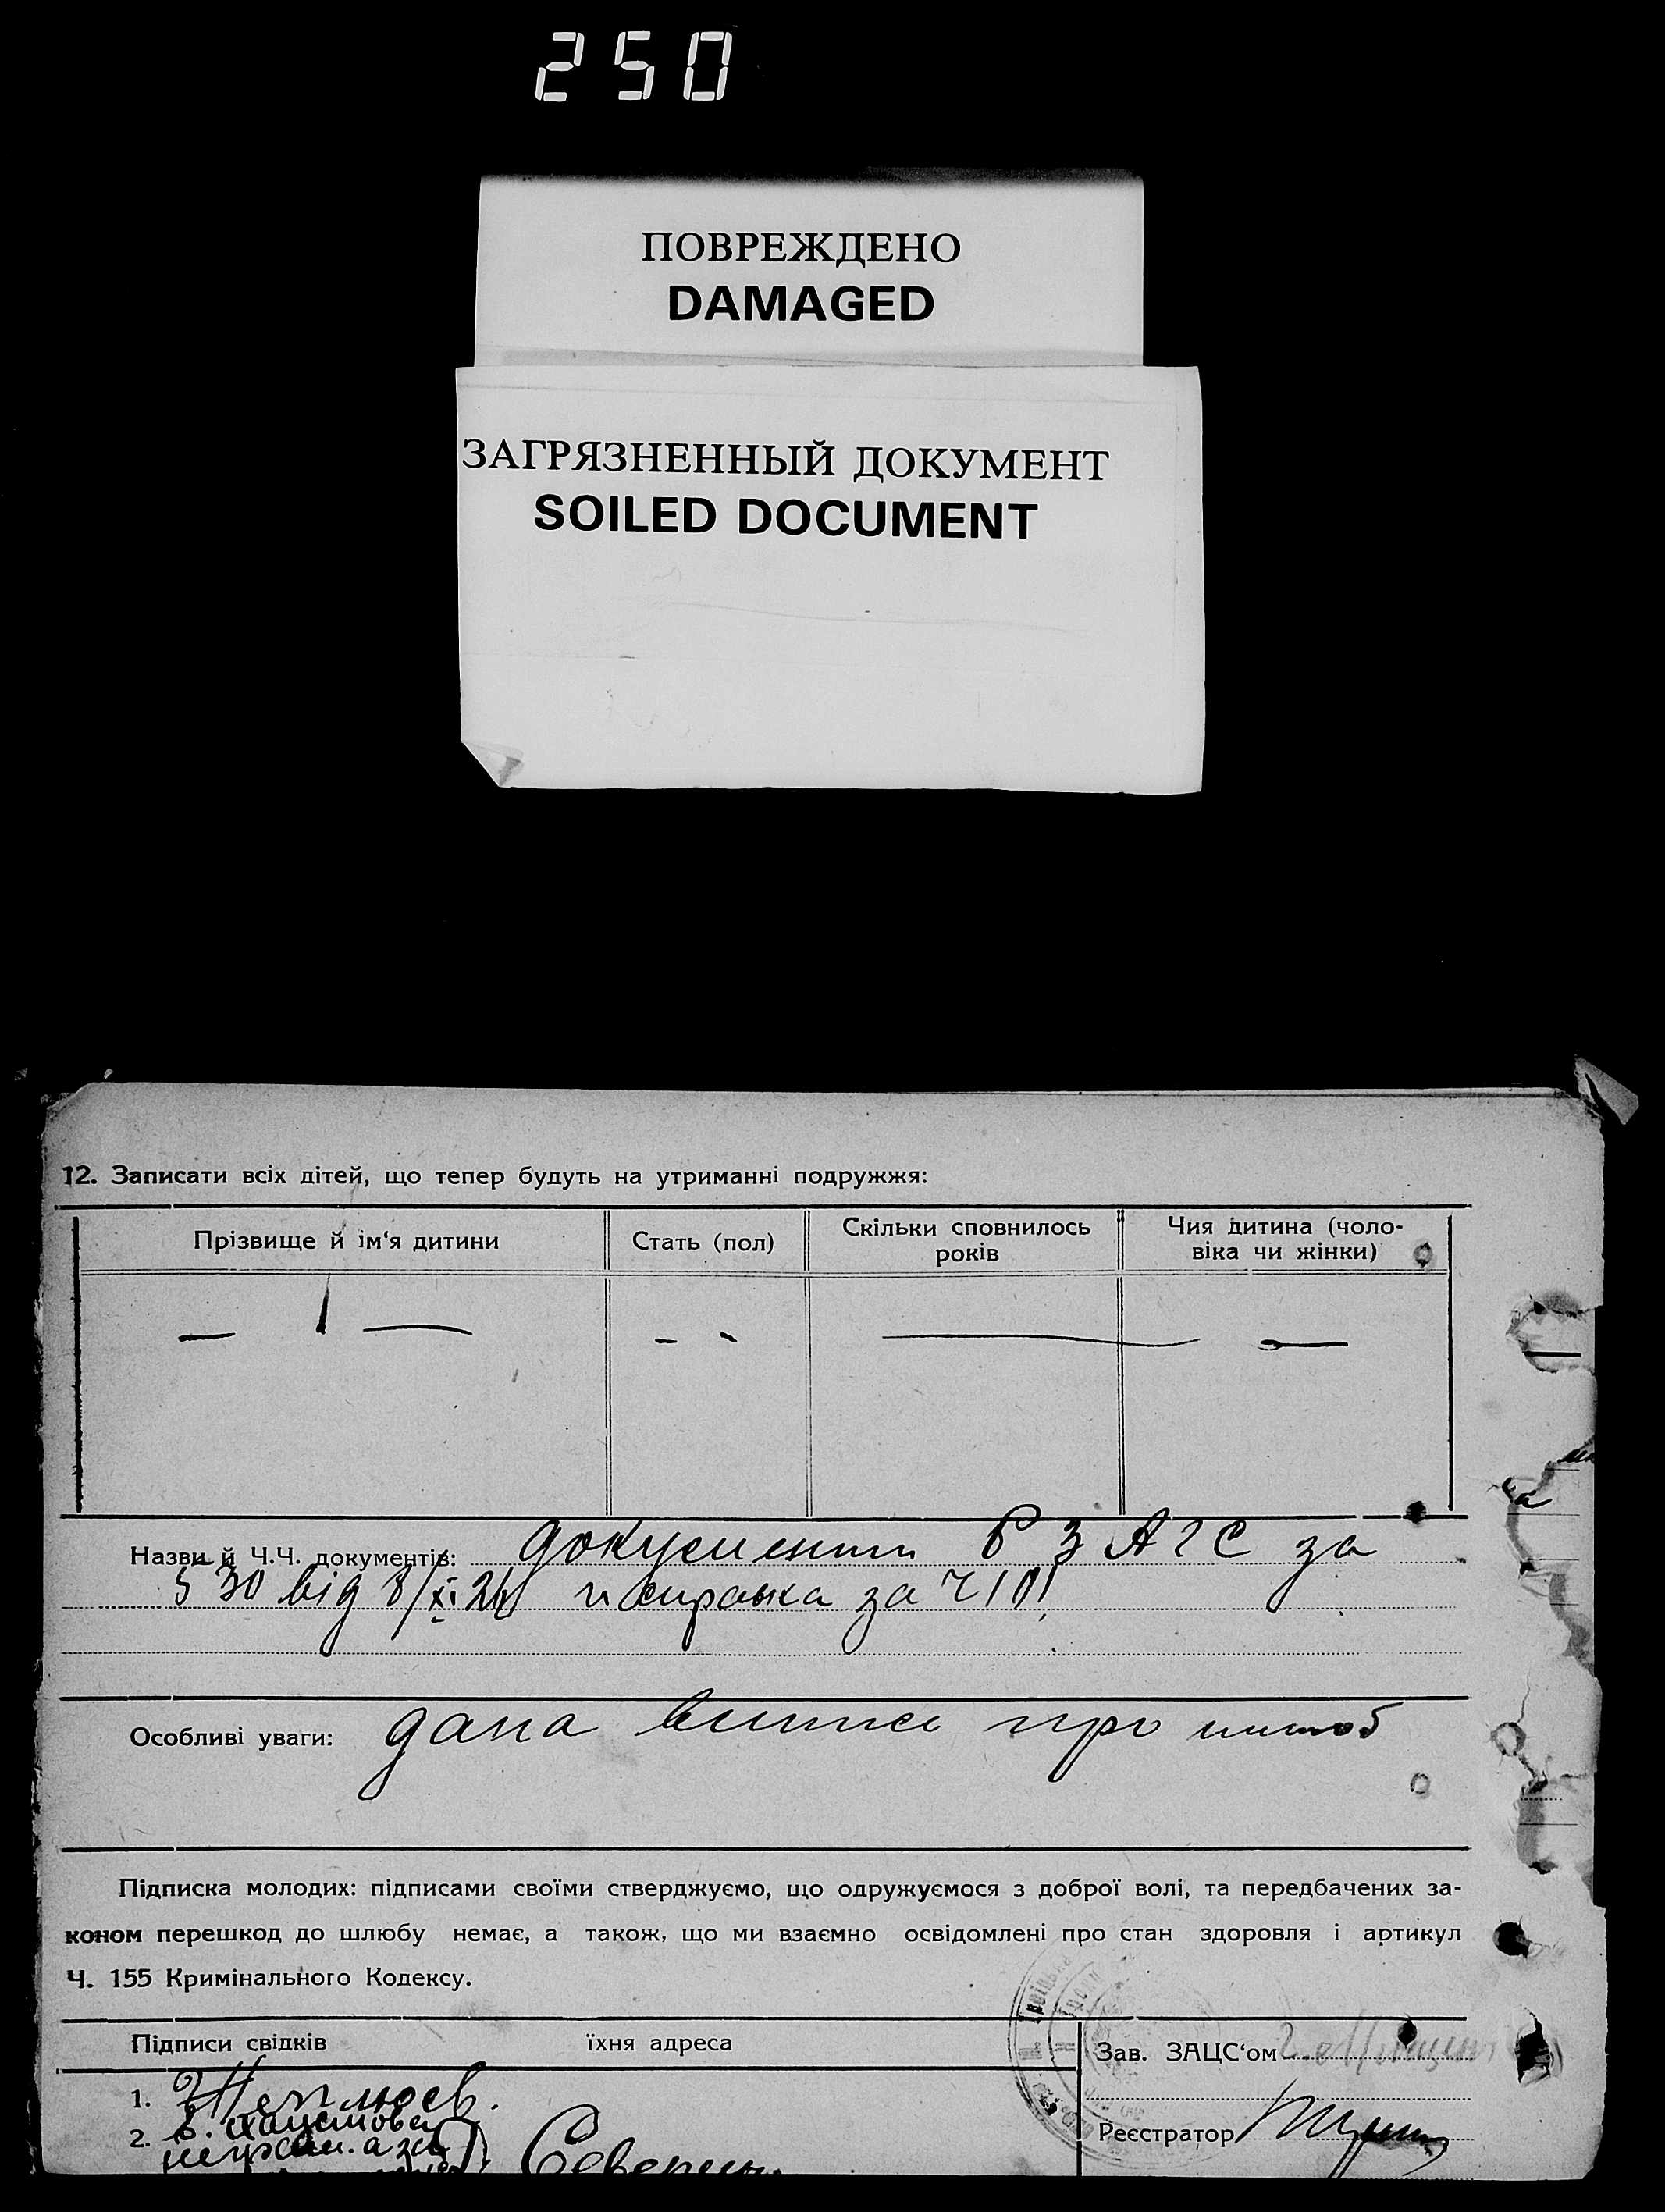 250
ПОВРЕЖДЕНО
DAMAGED
ЗАГРЯЗНЕННЫЙ ДОКУМЕНТ
SOILED DOCUMENT
12. Записати всіх дітей, що тепер будуть на утриманні подружжя:
Прізвище й ім‘я дитини
Стать (пол)
Скільки сповнилось
років
Чия дитина (чоло-
віка чи жінки)
Назви й Ч.Ч. документів: документи З А Г С за
530 від 8/XI 24 и справка за
Особливі уваги: дана випись про шлюб
Підписка молодих: підписами своїми стверджуємо, що одружуємося з доброї волі, та передбачених за-
коном перешкод до шлюбу немає, а також, що ми взаємно освідомлені про стан здоровля і артикул
Ч. 155 Кримінального Кодексу.
Підписи свідків
їхня адреса
Зав. ЗАЦС‘ом
1.
2.
Реєстратор